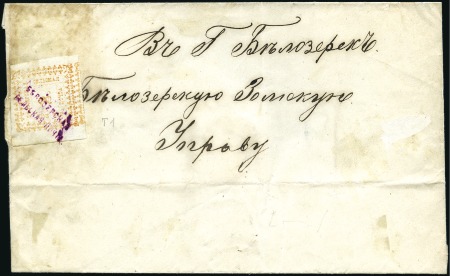 Въ Г Бѣлозерскъ.
Бѣлозерскую Земскую
Управу
T1